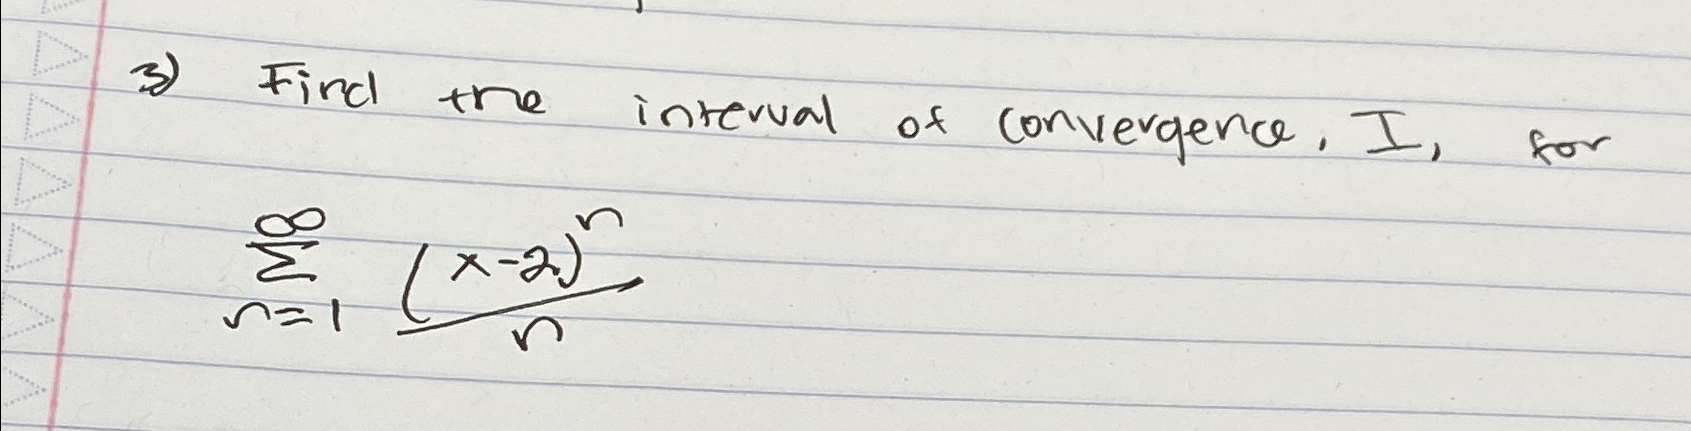 3) Find the interval of convergence, I, for
∞
Σ (x-2)^n / n
n=1